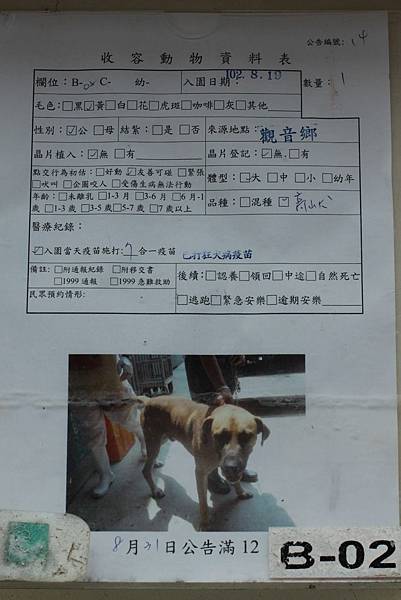 公告編號: 14
收容動物資料表
欄位：B-02 C- 幼- 入園日期： 102.8.19 數量：1
毛色：□黑☑黃□白□花□虎斑□咖啡□灰□其他
性別：☑公□母 結紮：□是□否 來源地點： 觀音鄉
晶片植入：☑無□有 晶片登記：☑無□有
點交行為初估：□好動☑友善可碰□緊張
□吠叫□企圖咬人□受傷生病無法行動
體型：☑大□中□小□幼年
年齡：□未離乳□1-3月□3-6月□6月-1
歲□1-3歲□3-5歲□5-7歲□7歲以上
品種：□混種☑高山犬
醫療紀錄：
☑入園當天疫苗施打：7合一疫苗 已打狂犬病疫苗
備註：□附通報紀錄□附移交書
□1999通報□1999急難救助
後續：□認養□領回□中途□自然死亡
民眾預約情形：
□逃跑□緊急安樂□逾期安樂
8月31日公告滿12
B-02